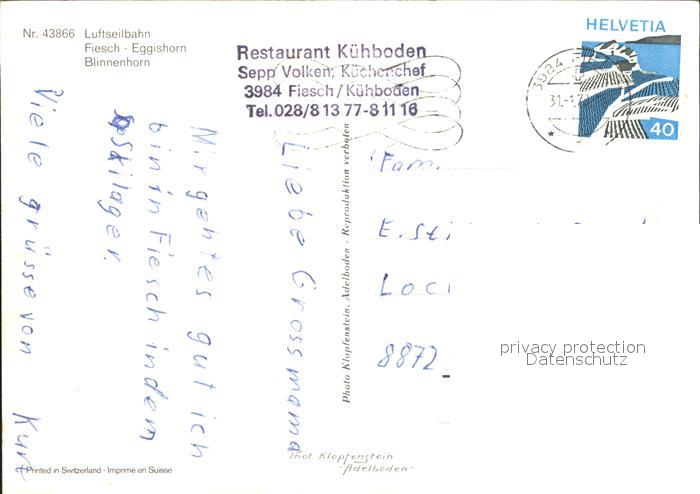 Nr. 43866 Luftseilbahn
Fiesch - Eggishorn
Blinnenhorn
Restaurant Kühboden
Sepp Volken, Küchenchef
3984 Fiesch / Kühboden
Tel. 028/8 13 77-8 11 16
HELVETIA
40
3984
Liebe Grossmama
Mir geht es gut ich
bin in Fiesch in dem
Skilager.
Viele grüsse von Kurt
Photo Klopfenstein, Adelboden - Reproduktion verboten
Fam.
E. Sti
Loc
8872
privacy protection
Datenschutz
Phot Klopfenstein
"Adelboden"
Printed in Switzerland - Imprimé en Suisse